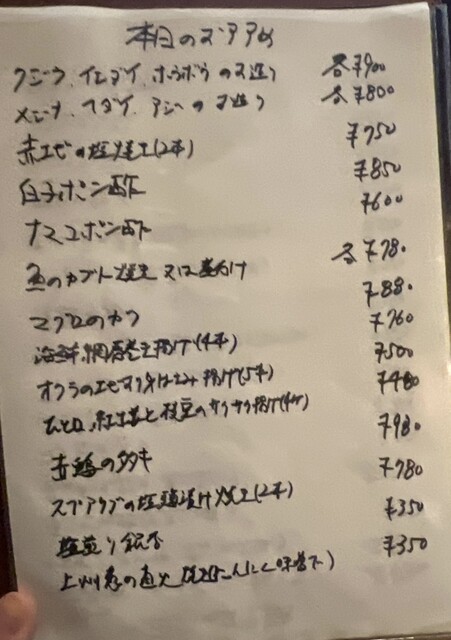 本日のオススメ
クジラ、イシダイ、ホウボウのお造り 各¥900
メジナ、マダイ、アジのお造り 各¥800
赤エビの塩焼き(2本) ¥750
白子ポン酢 ¥850
ナマコポン酢 ¥600
魚のカブト焼き 又は煮付け 各¥780
マグロのカマ ¥880
海鮮網春巻き揚げ(4本) ¥760
オクラのエビすり身はさみ揚げ(5本) ¥500
紅生姜と枝豆のサクサク揚げ ¥480
赤鶏のタタキ ¥980
スペアリブの塩麹漬け焼き(2本) ¥780
塩煎り銀杏 ¥350
上州ねぎの直火焼き(にんにく味噌で) ¥350